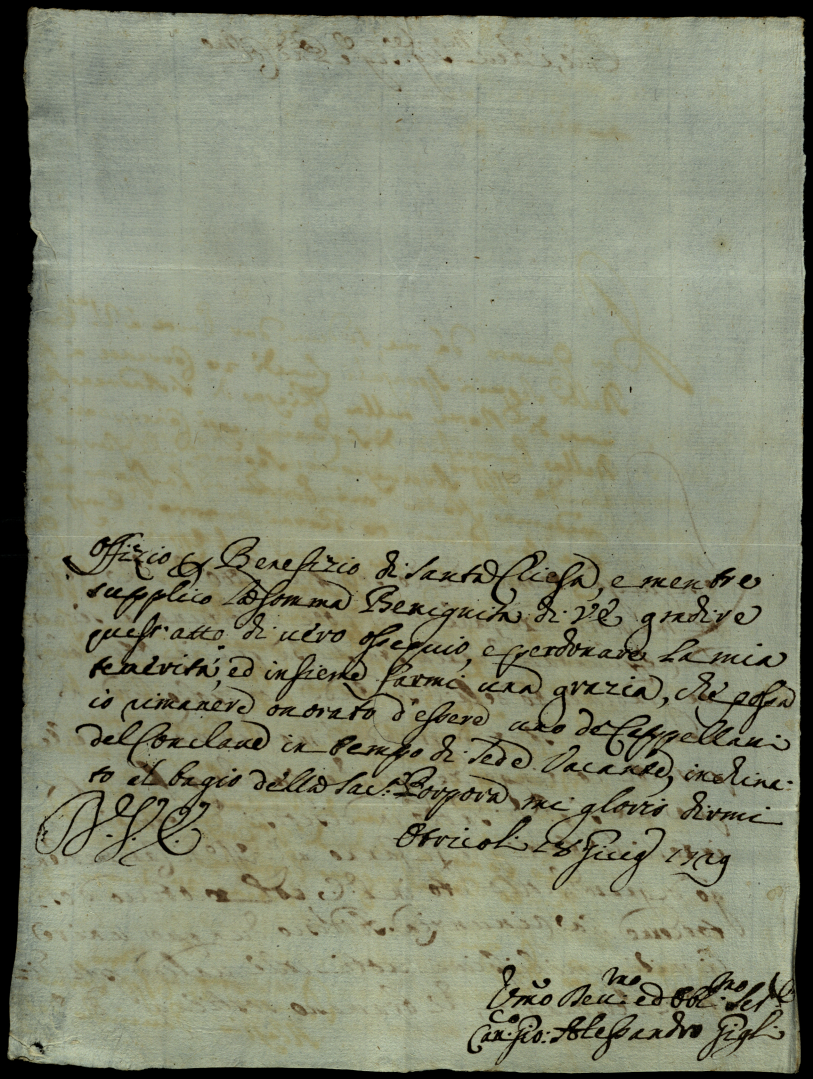 Offizio, e Benefizio di Santa Chiesa, e mentre
supplico la somma Benignità di V.E. gradire
quest'atto di vero ossequio, e perdonare la mia
temerità, ed insieme farmi una grazia, che possa
io rimanere onorato d'essere uno de Cappellani
del Conclave in tempo di Sede Vacante, inchina-
to al bagio della Sac: Porpora mi glorio dirmi
Otricoli 18 Giug 1729
Umo Devmo ed Obblmo Ser
Canco Gio: Alessandro Gigli